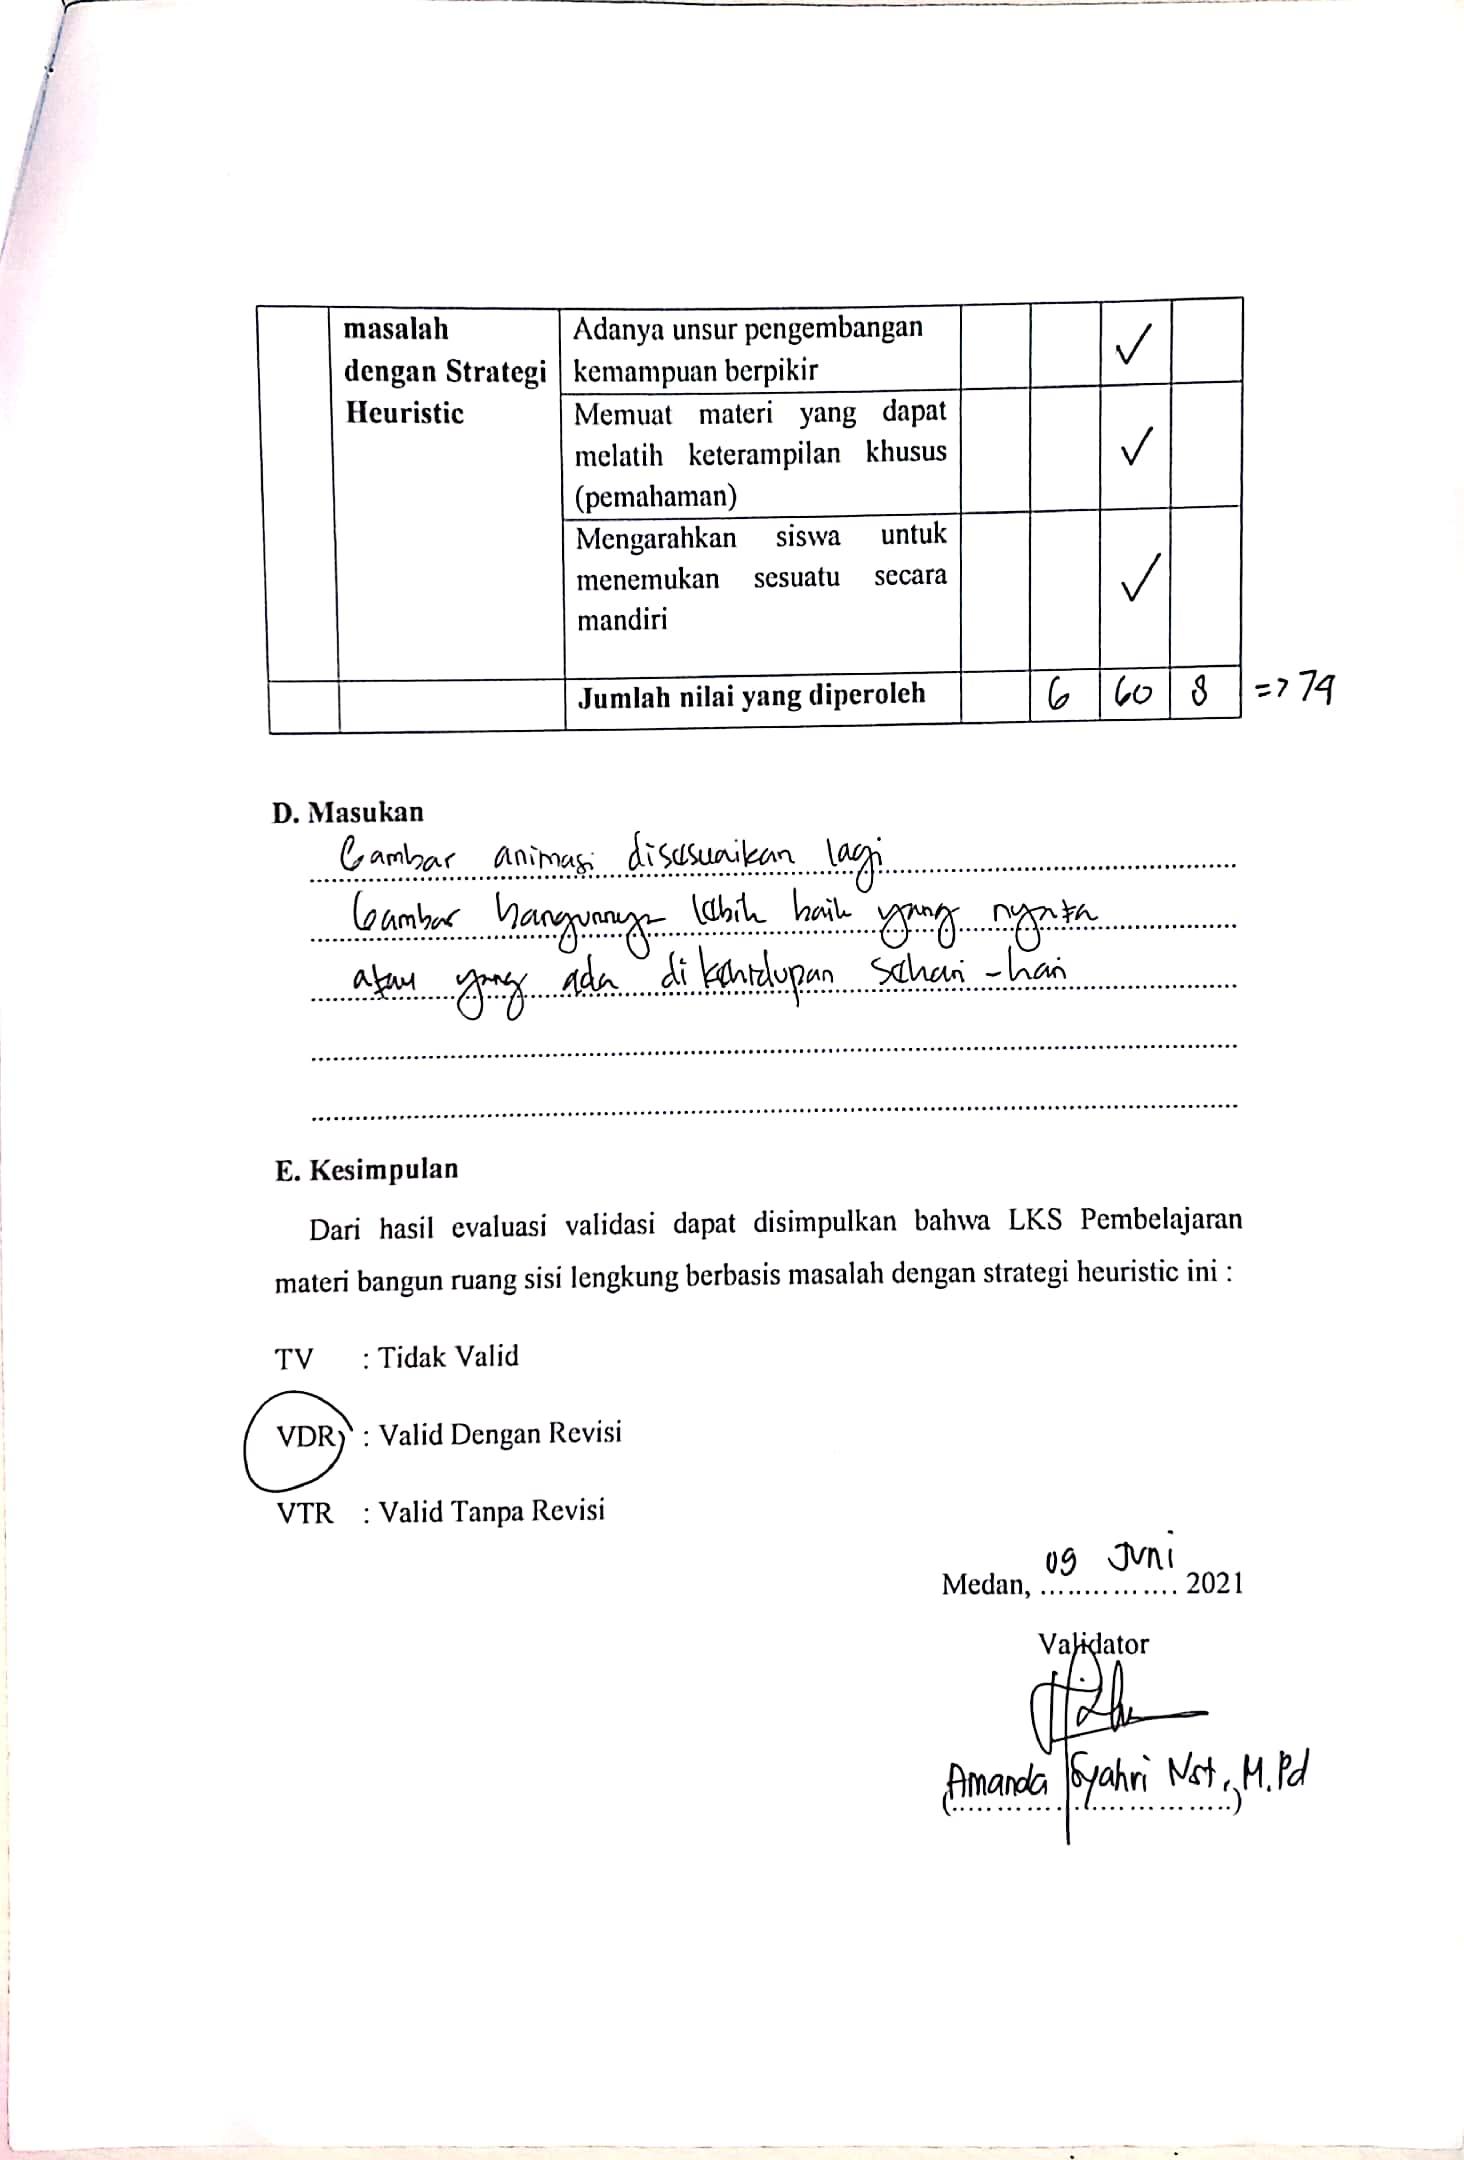 masalah
dengan Strategi
Heuristic
Adanya unsur pengembangan
kemampuan berpikir
✓
Memuat materi yang dapat
melatih keterampilan khusus
(pemahaman)
✓
Mengarahkan siswa untuk
menemukan sesuatu secara
mandiri
✓
Jumlah nilai yang diperoleh 6 60 8 => 74
D. Masukan
Gambar animasi disesuaikan lagi
Gambar bangunnya lebih baik yang nyata
atau yang ada di kehidupan sehari-hari
E. Kesimpulan
Dari hasil evaluasi validasi dapat disimpulkan bahwa LKS Pembelajaran
materi bangun ruang sisi lengkung berbasis masalah dengan strategi heuristic ini :
TV : Tidak Valid
VDR : Valid Dengan Revisi
VTR : Valid Tanpa Revisi
Medan, 09 Juni 2021
Validator
(Amanda Syahri Nst, M.Pd)